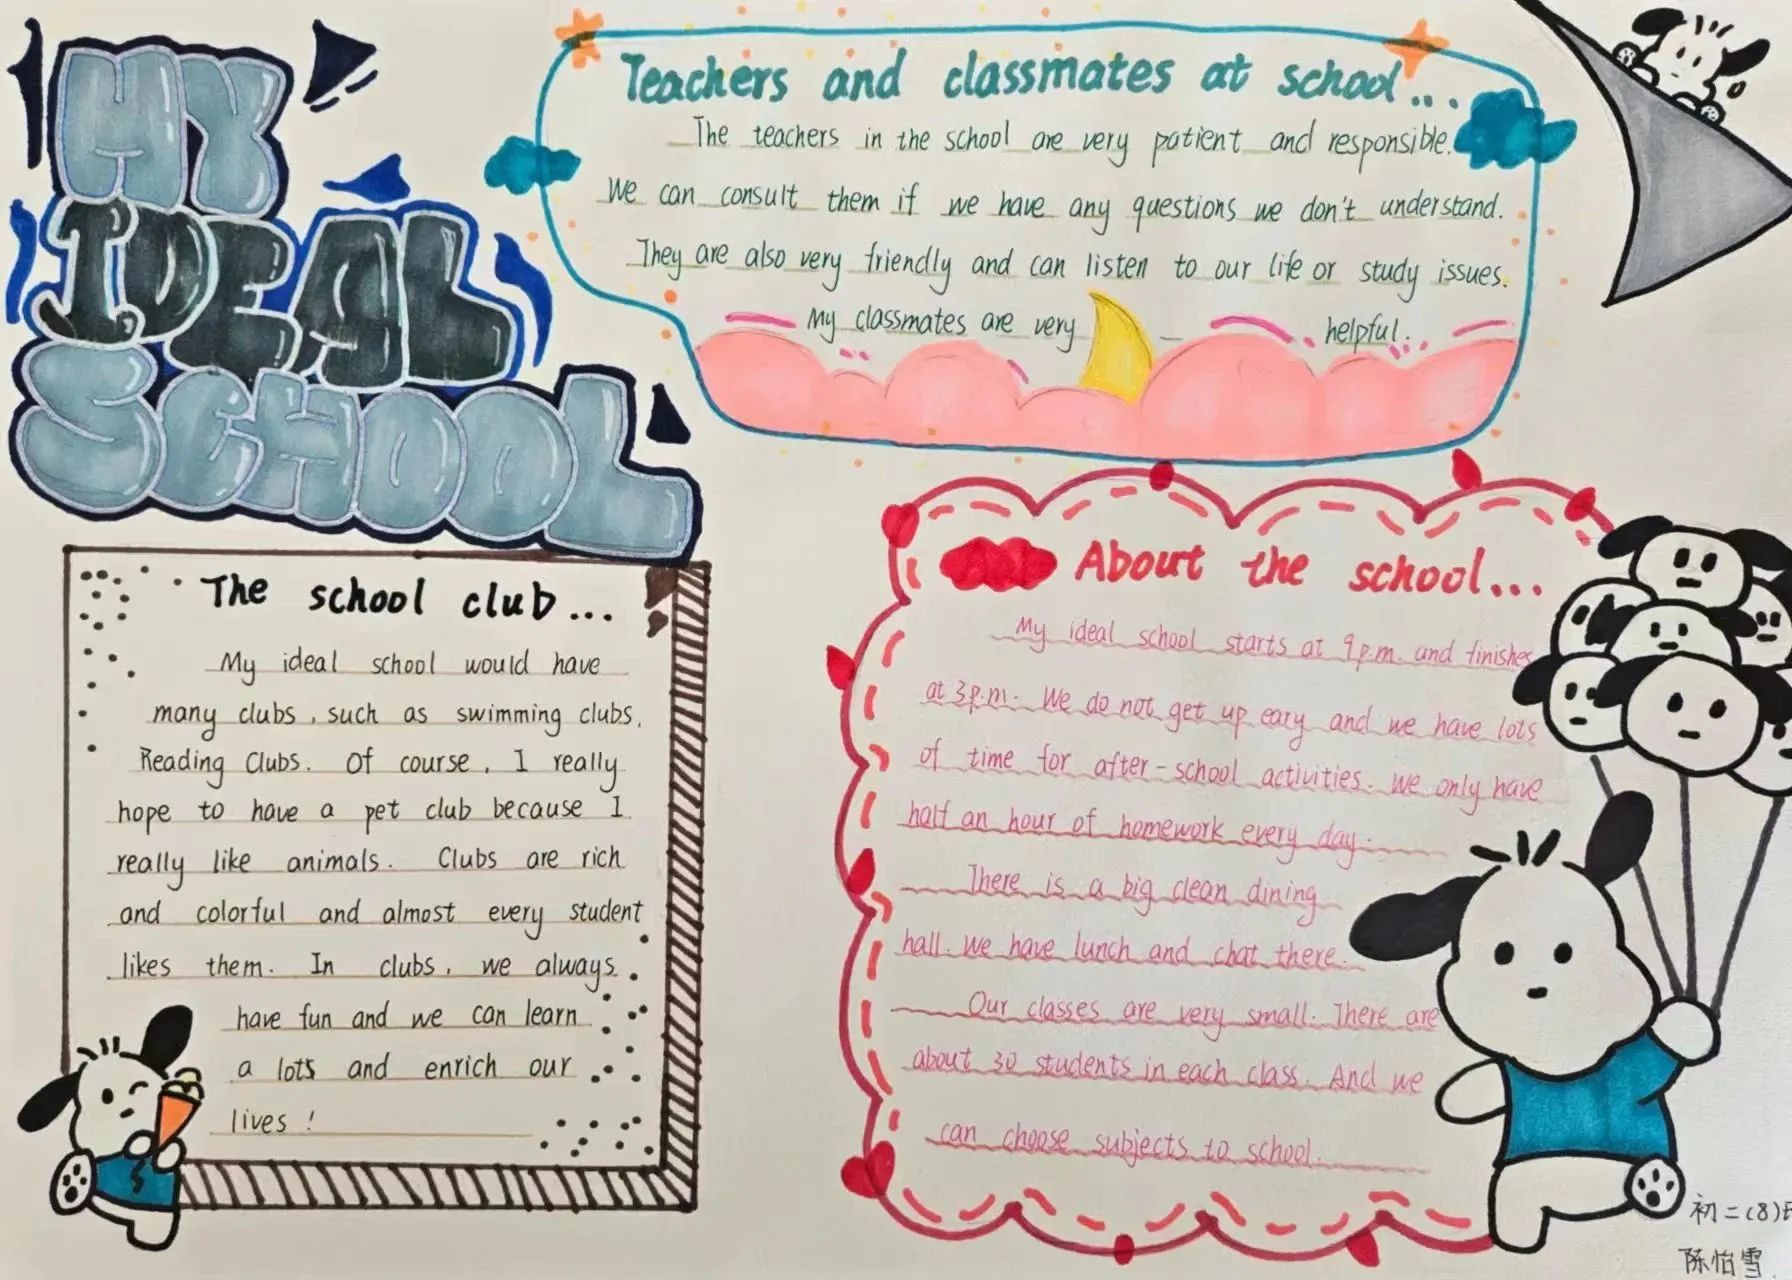 MY
IDEAL
SCHOOL
Teachers and classmates at school...
The teachers in the school are very patient and responsible.
We can consult them if we have any questions we don't understand.
They are also very friendly and can listen to our life or study issues.
My classmates are very helpful.
The school club...
My ideal school would have
many clubs, such as swimming clubs,
Reading Clubs. Of course, I really
hope to have a pet club because I
really like animals. Clubs are rich
and colorful and almost every student
likes them. In clubs, we always
have fun and we can learn
a lots and enrich our
lives!
About the school...
My ideal school starts at 9 p.m. and finishes
at 3 p.m. We do not get up eary and we have lots
of time for after-school activities. We only have
half an hour of homework every day.
There is a big clean dining
hall. We have lunch and chat there.
Our classes are very small. There are
about 30 students in each class. And we
can choose subjects to school.
初二(8)
陈怡雪